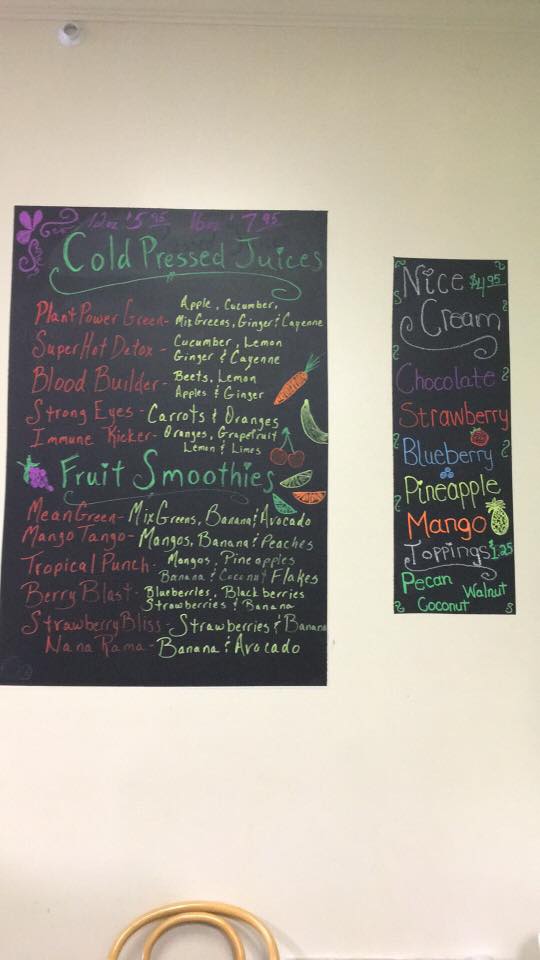 12oz $5.95 16oz $7.95
Cold Pressed Juices
Plant Power Green - Apple, Cucumber,
Mix Greens, Ginger & Cayenne
Super Hot Detox - Cucumber, Lemon
Ginger & Cayenne
Blood Builder - Beets, Lemon
Apples & Ginger
Strong Eyes - Carrots & Oranges
Immune Kicker - Oranges, Grapefruit
Lemon & Limes
Fruit Smoothies
Mean Green - Mix Greens, Banana & Avocado
Mango Tango - Mangos, Banana & Peaches
Tropical Punch - Mangos, Pineapples
Banana & Coconut Flakes
Berry Blast - Blueberries, Blackberries
Strawberries & Banana
Strawberry Bliss - Strawberries & Banana
Nana Rama - Banana & Avocado
Nice $4.95
Cream
Chocolate
Strawberry
Blueberry
Pineapple
Mango
Toppings $1.25
Pecan
Walnut
Coconut